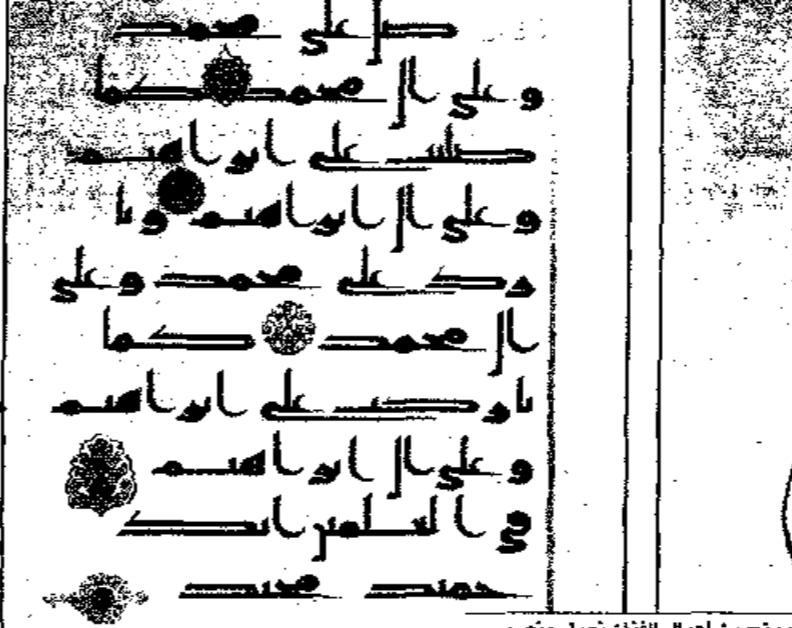 صل على محمد
وعلى ال محمد كما
صليت على ابراهيم
وعلى ال ابراهيم وبا
رك على محمد وعلى
ال محمد كما
باركت على ابراهيم
وعلى ال ابراهيم
في العالمين انك
حميد مجيد